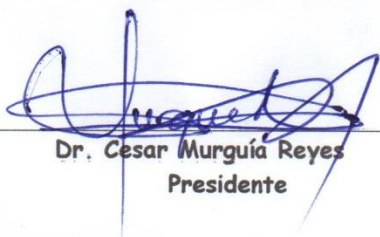 Dr. Cesar Murguía Reyes
Presidente